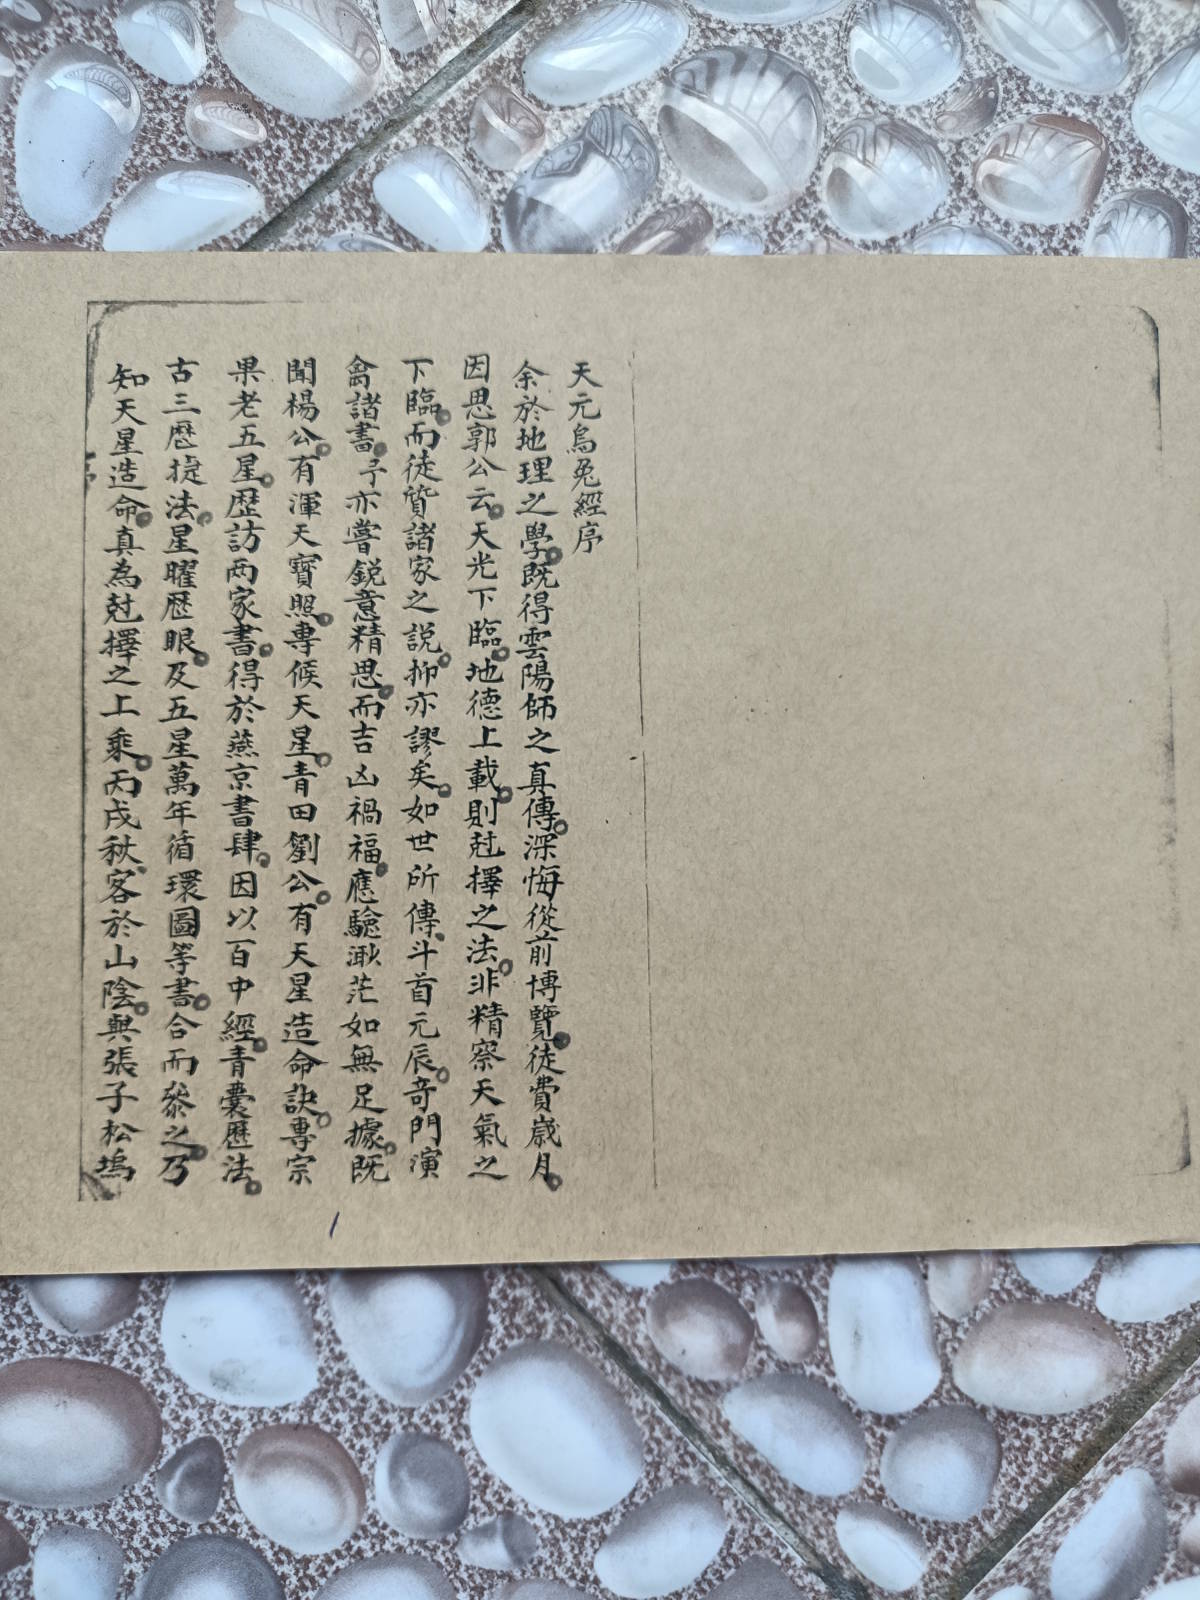 天元烏兔經序
余於地理之學既得雲陽師之真傳深悔從前博覽徒費歲月
因思郭公云天光下臨地德上載則尅擇之法非精察天氣之
下臨而徒質諸家之說抑亦謬矣如世所傳斗首元辰奇門演
禽諸書予亦嘗銳意精思而吉凶禍福應驗渺茫如無足據既
聞楊公有渾天寶照專候天星青田劉公有天星造命訣專宗
果老五星歷訪兩家書得於燕京書肆因以百中經青囊歷法
古三歷捷法星曜歷眼及五星萬年循環圖等書合而參之乃
知天星造命真為尅擇之上乘丙戌秋客於山陰與張子松塢